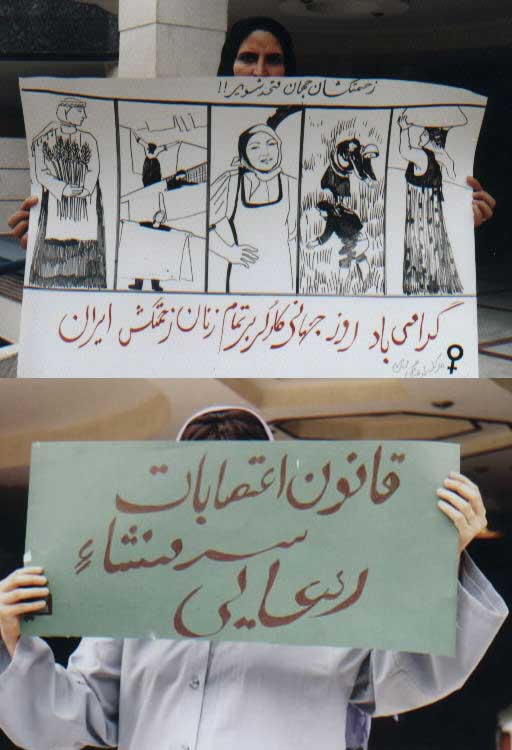 زحمتکشان جهان متحد شوید!!
گرامی باد روز جهانی کارگر بر تمام زنان زحمتکش ایران
قانون اعتصابات
سرمنشاء
رهایی